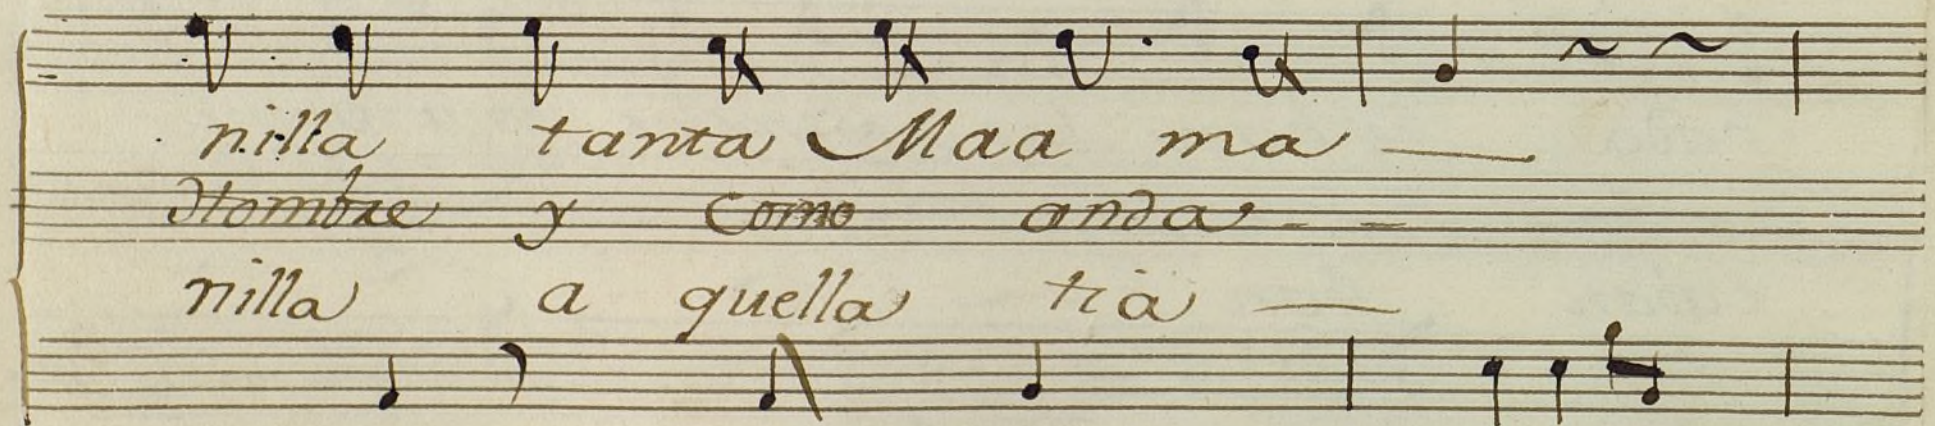 nilla tanta Maa ma
Hombre y como anda
nilla a quella tia